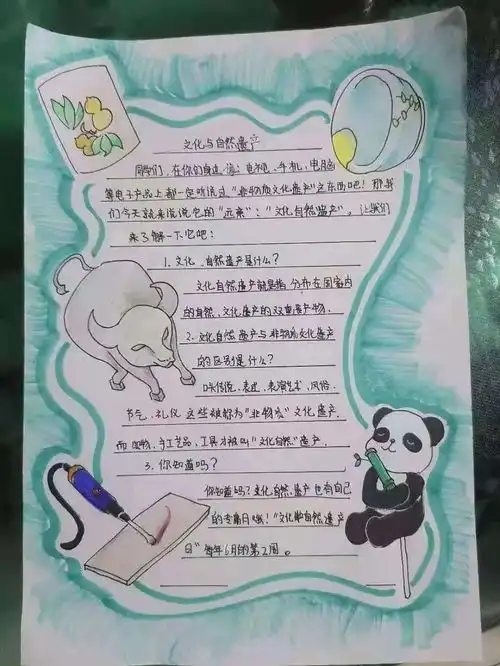 文化与自然遗产
同学们，在你们身边、电视、手机、电脑
等电子产品上都一定听说过"非物质文化遗产"这东西吧！那我
们今天就来说说它的"远亲"："文化自然遗产"。让我们
来了解一下它吧：
1. 文化、自然遗产是什么？
文化自然遗产就是指分布在国家内
的自然、文化遗产的双重遗产物.
2. 文化自然遗产与非物质文化遗产
的区别是什么？
口头传说、表述、表演艺术、风俗、
节气、礼仪这些被称为"非物质"文化遗产.
而实物、手工艺品、工具才被叫"文化自然"遗产.
3. 你知道吗？
你知道吗？文化自然遗产也有自己
的专属日哦！"文化和自然遗产
日"每年6月的第2周。